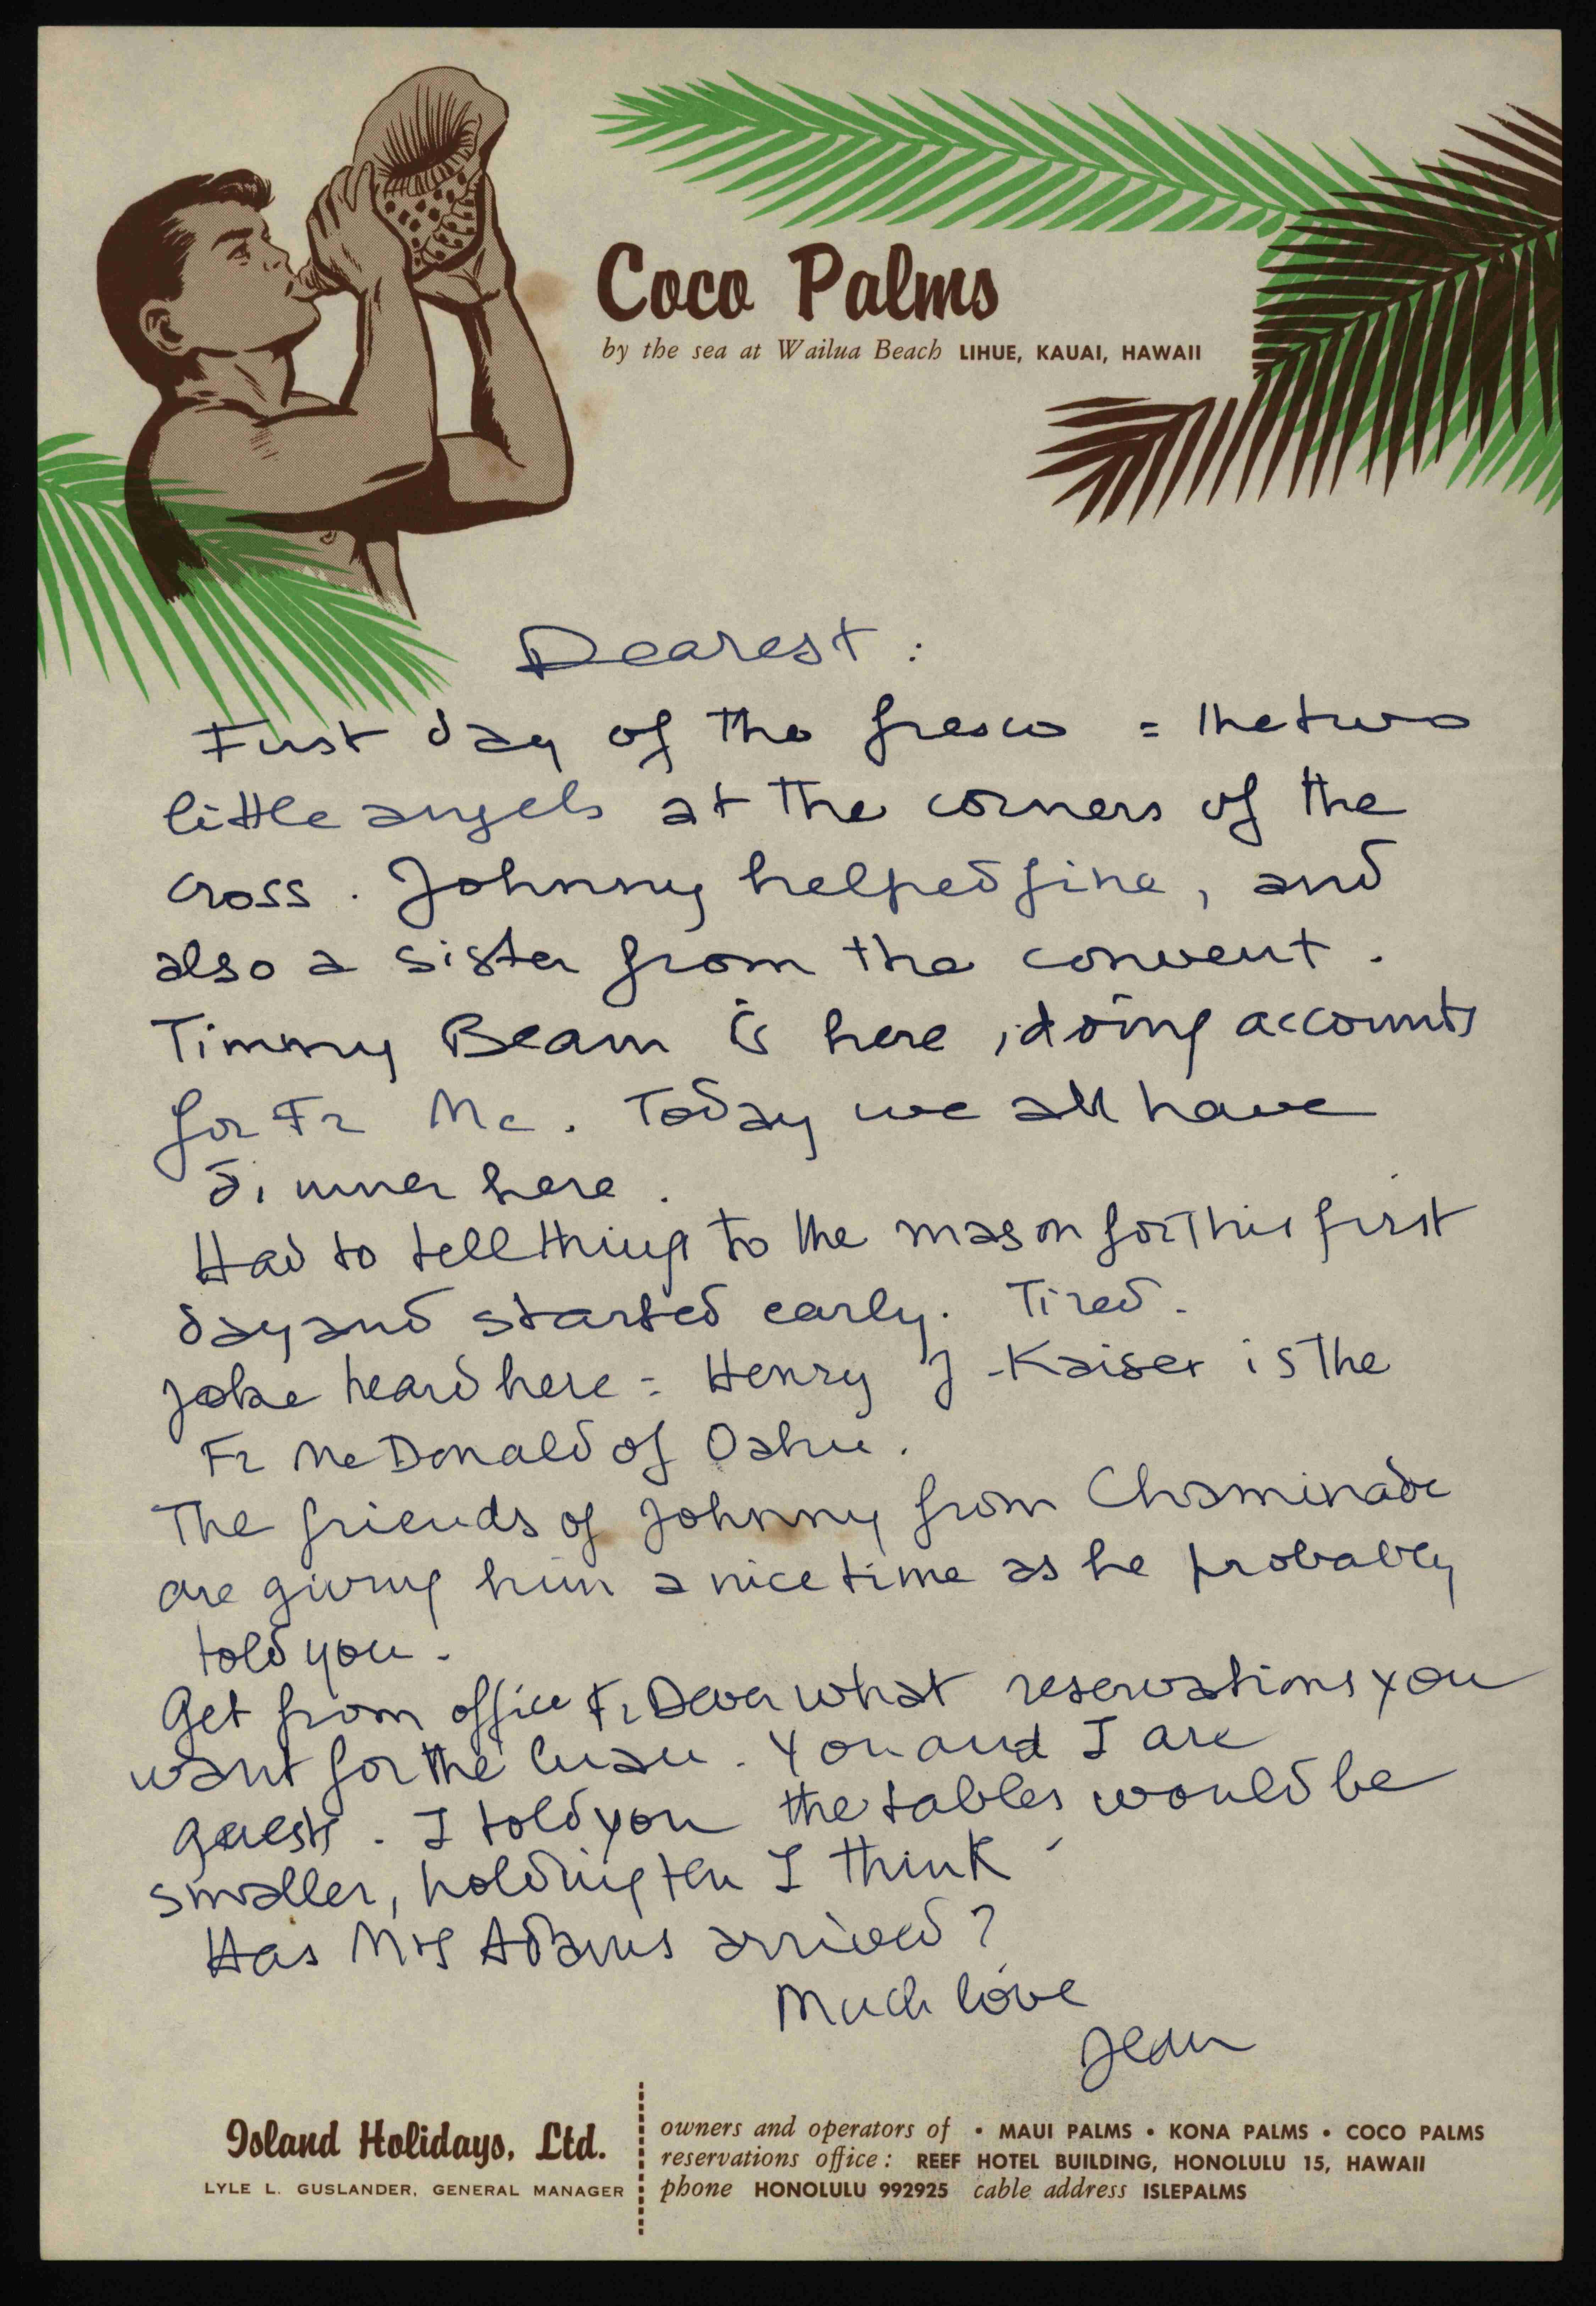 Coco Palms
by the sea at Wailua Beach LIHUE, KAUAI, HAWAII
Dearest :
First day of the fresco = the two
little angels at the corners of the
cross. Johnny helped fine, and
also a sister from the convent.
Timmy Beam is here, doing accounts
for Fr Mc. Today we all have
dinner here.
Had to tell things to the mason for this first
day and started early. Tired.
Joke heard here = Henry J. Kaiser is the
Fr McDonald of Oahu.
The friends of Johnny from Chaminade
are giving him a nice time as he probably
told you.
Get from office Fr Dever what reservations you
want for the luau. You and I are
guests. I told you the tables would be
smaller, holding ten I think.
Has Mrs Adams arrived?
Much love
Jean
Island Holidays, Ltd.
LYLE L. GUSLANDER, GENERAL MANAGER
owners and operators of • MAUI PALMS • KONA PALMS • COCO PALMS
reservations office: REEF HOTEL BUILDING, HONOLULU 15, HAWAII
phone HONOLULU 992925 cable address ISLEPALMS